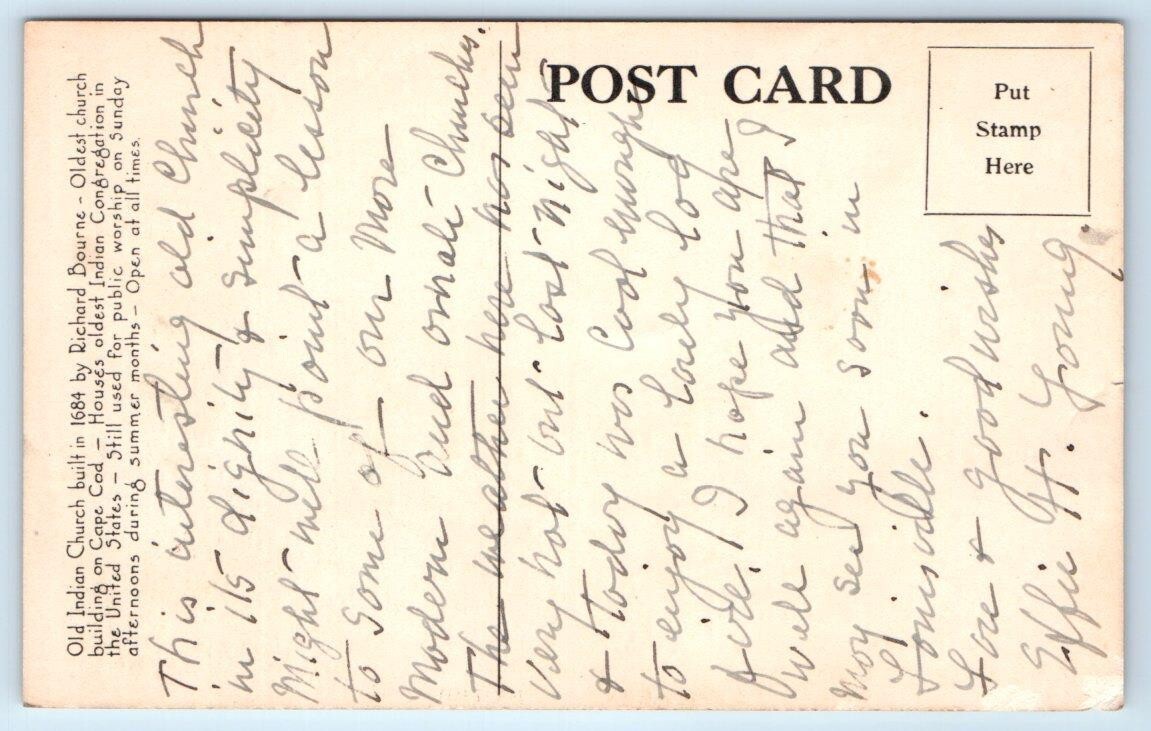 POST CARD
Put
Stamp
Here
Old Indian Church built in 1684 by Richard Bourne - Oldest church
building on Cape Cod - Houses oldest Indian Congregation in
the United States - Still used for public worship on Sunday
afternoons during summer months - Open at all times.
This interesting old Church
in its dignity & simplicity
Might well point a lesson
to Some of our More
Modern and ornate Churches.
The weather here has been
very hot but last night
& today was Cool enough
to enjoy a lovely log
fire! I hope you are
well again and that I
may see you soon in
Louisville.
Love & good wishes
Effie H. Young.